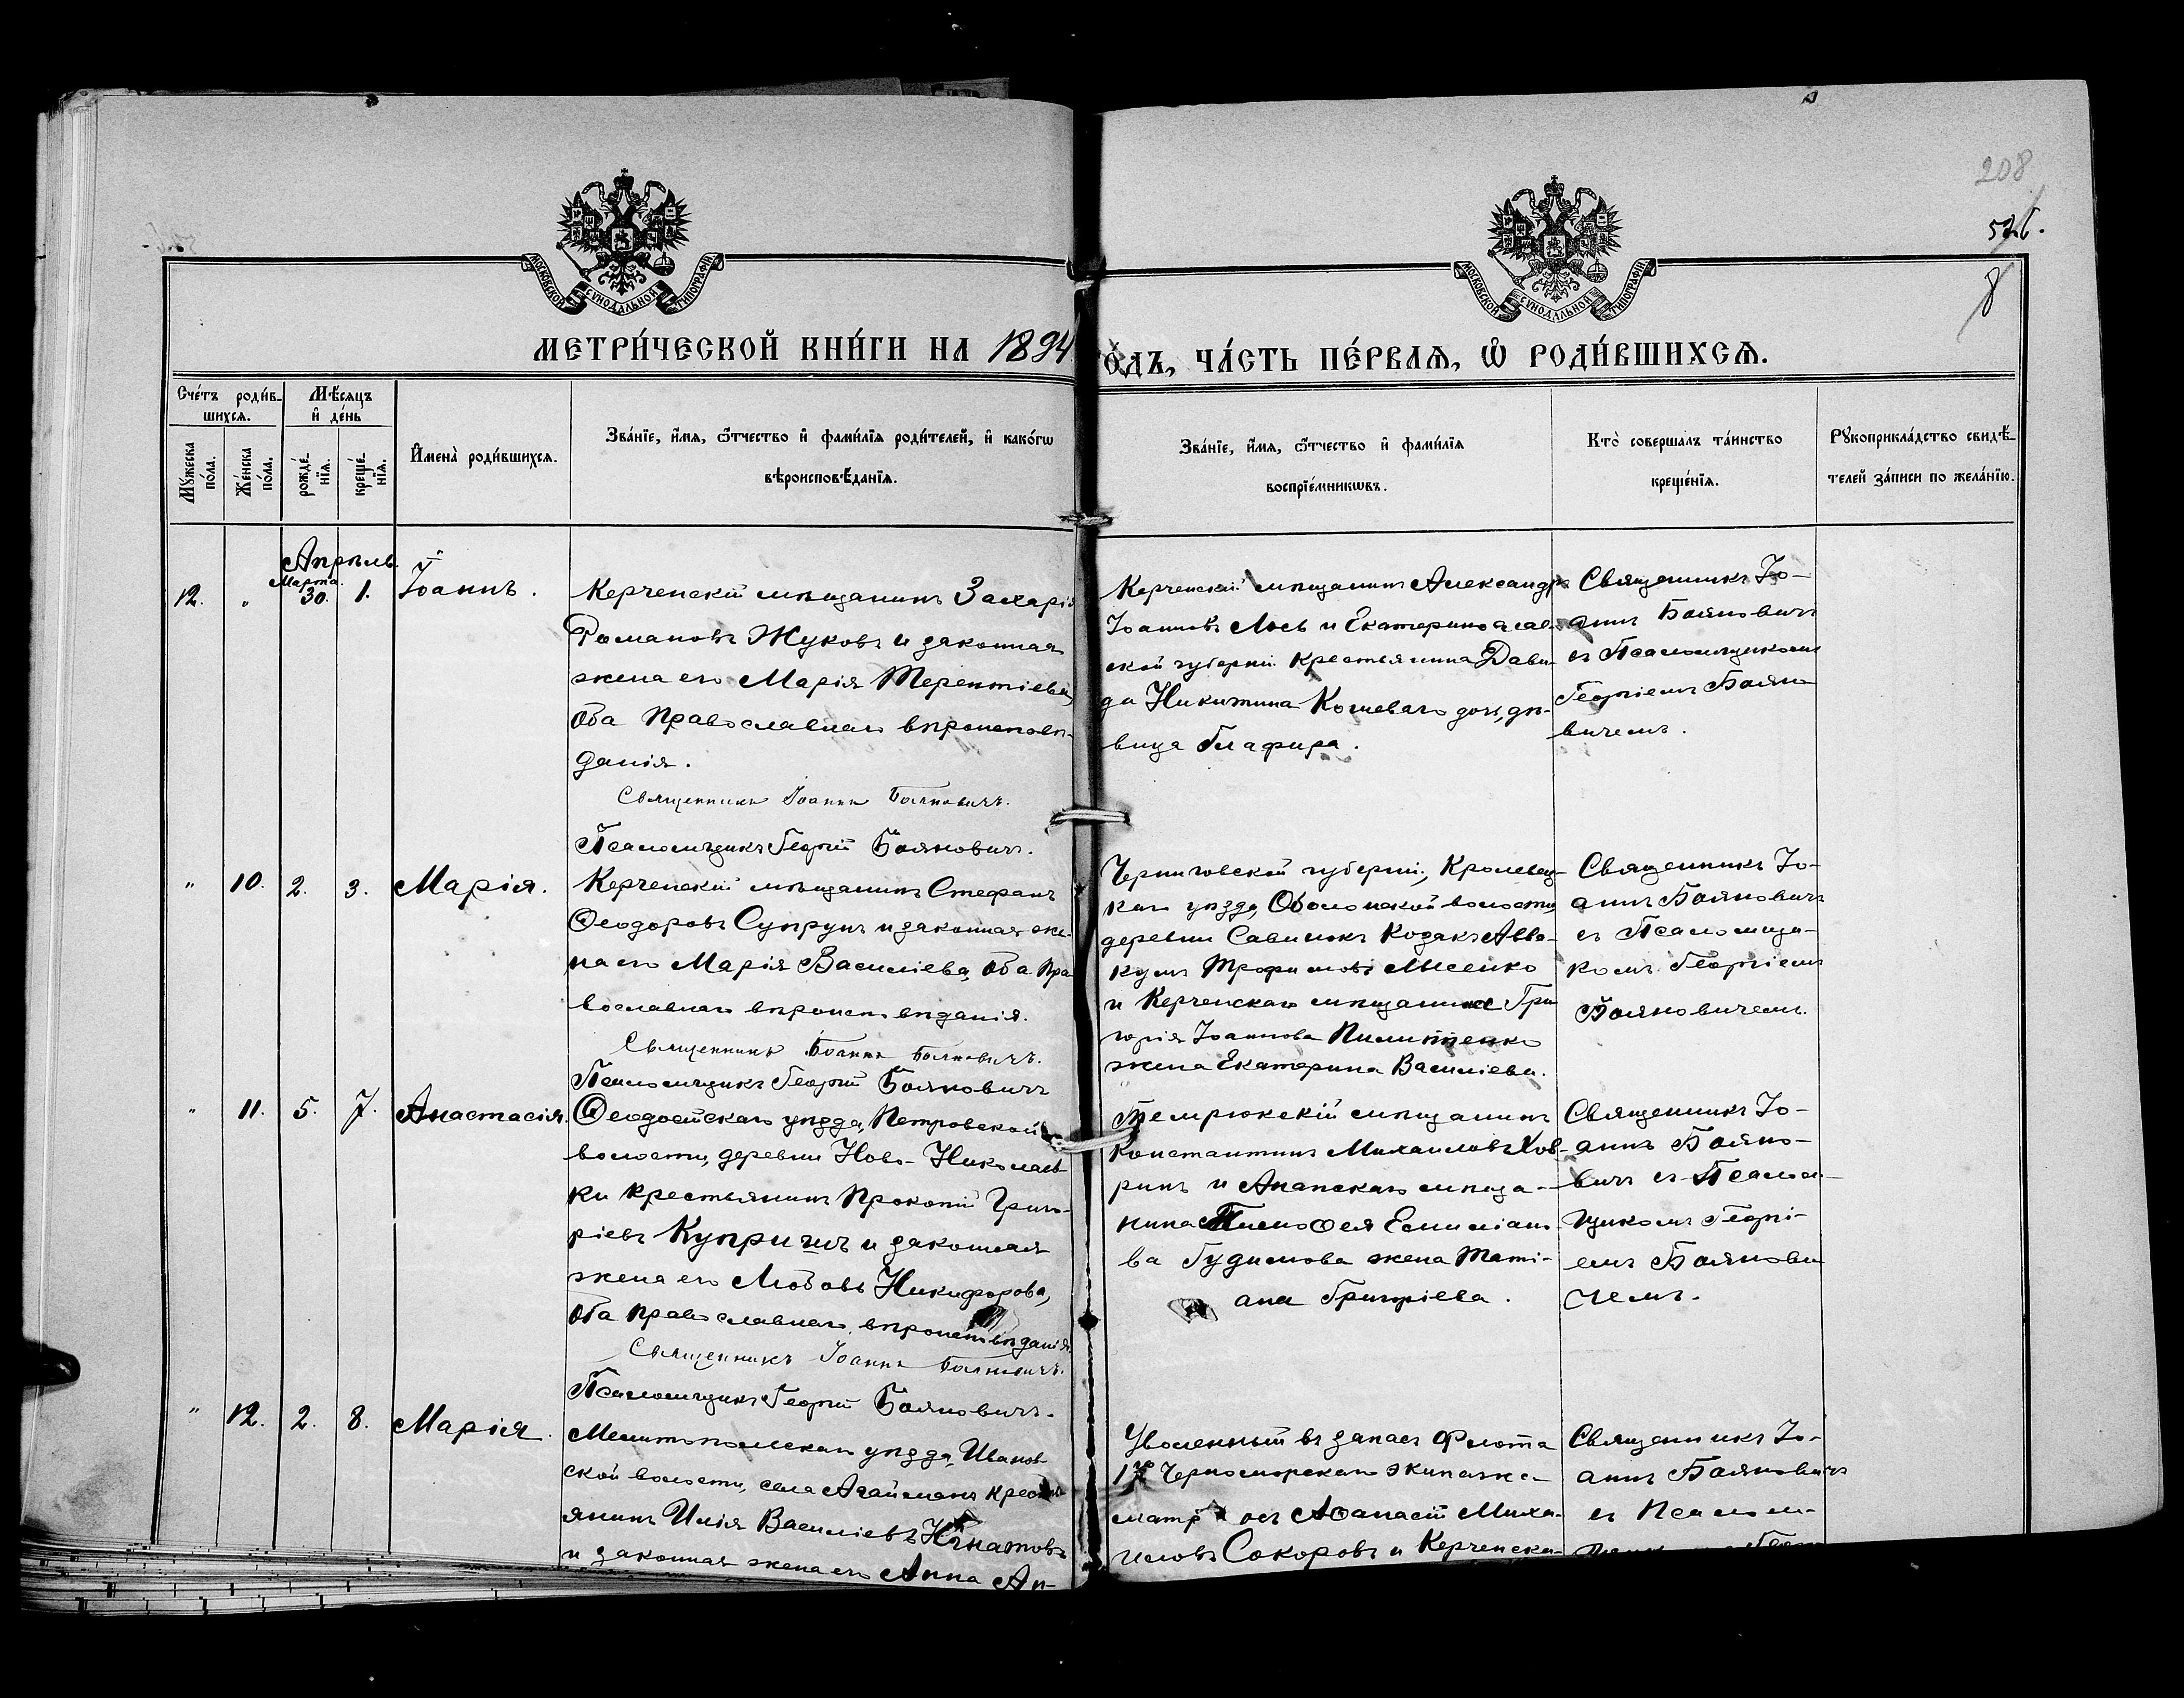 208
526.
8
МОСКОВСКОЙ СѴНОДАЛЬНОЙ ТИПОГРАФІИ
МОСКОВСКОЙ СѴНОДАЛЬНОЙ ТИПОГРАФІИ
МЕТРИ́ЧЕСКОЙ КНИ́ГИ НА 1894
О́ДЪ, ЧА́СТЬ ПЕ́РВАѦ, Ѡ҆ РОДИ́ВШИХСѦ.
Сче́тъ роди́в-
шихсѧ.
Мѣ́сѧцъ
и҆ де́нь
Мꙋ́жеска по́ла.
Же́нска по́ла.
рожде́-
нїѧ.
креще́-
нїѧ.
И҆мена̀ роди́вшихсѧ.
Зва́нїе, и҆́мѧ, ѻ҆́тчество и҆ фами́лїѧ роди́телей, и҆ како́гѡ
вѣроисповѣ́данїѧ.
Зва́нїе, и҆́мѧ, ѻ҆́тчество и҆ фами́лїѧ
воспрїе́мникѡвъ.
Кто̀ соверша́лъ та́инство
креще́нїѧ.
Рꙋкоприкла́дство свидѣ́-
телей за́писи по жела́нїю.
Апрѣль.
Марта
12. " 30. 1. Іоаннъ.
Керченскій мѣщанинъ Захарія
Романовъ Жуковъ и законная
жена его Марія Терентіева,
оба Православнаго вѣроисповѣ-
данія.
Священникъ Іоаннъ Бояновичъ.
Псаломщикъ Георгій Бояновичъ.
Керченскій мѣщанинъ Александръ
Іоанновъ Лось и Екатеринослав-
ской губерніи крестьянина Дави-
да Никитина Кошеваго дочь, дѣ-
вица Глафира.
Священникъ Іо-
аннъ Бояновичъ
съ Псаломщикомъ
Георгіемъ Бояно-
вичемъ.
" 10. 2. 3. Марія.
Керченскій мѣщанинъ Стефанъ
Ѳеодоровъ Супрунъ и законная же-
на его Марія Василіева, оба Пра-
вославнаго вѣроисповѣданія.
Священникъ Іоаннъ Бояновичъ.
Псаломщикъ Георгій Бояновичъ
Черниговской губерніи, Кролевец-
каго уѣзда, Оболонской волости,
деревни Савинокъ козакъ Авва-
кумъ Трофимовъ Лысенко
и Керченскаго мѣщанина Гри-
горія Іоаннова Пилипенко
жена Екатерина Василіева.
Священникъ Іо-
аннъ Бояновичъ
съ Псаломщи-
комъ Георгіемъ
Бояновичемъ.
" 11. 5. 7. Анастасія.
Ѳеодосійскаго уѣзда, Петровской
волости, деревни Ново-Николаев-
ки крестьянинъ Прокопій Григо-
ріевъ Купричъ и законная
жена его Любовь Никифорова,
оба православнаго вѣроисповѣданія.
Священникъ Іоаннъ Бояновичъ.
Псаломщикъ Георгій Бояновичъ.
Темрюкскій мѣщанинъ
Константинъ Михаиловъ Хов-
ринъ и Анапскаго мѣща-
нина Тимоѳея Емиліано-
ва Гудимова жена Таті-
ана Григоріева.
Священникъ Іо-
аннъ Бояно-
вичъ съ Псалом-
щикомъ Георгі-
емъ Боянови-
чемъ.
" 12. 2. 8. Марія.
Мелитопольскаго уѣзда, Иванов-
ской волости, села Агайманъ крест-
янинъ Илія Василіевъ Игнатовъ
и законная жена его Анна Ан-
Уволенный въ запасъ флота
1го Черноморскаго экипажа
матросъ Аѳанасій Миха-
иловъ Сокоровъ и Керченска-
Священникъ Іо-
аннъ Бояновичъ
съ Псалом-